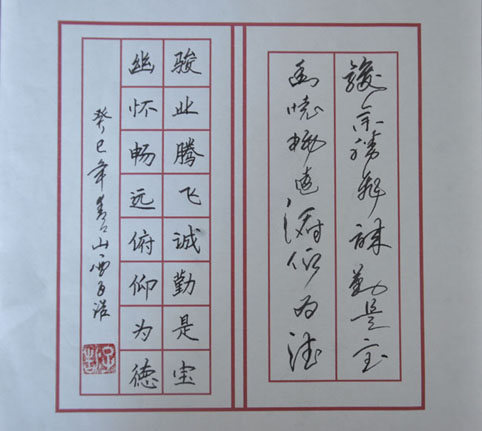 骏业腾飞诚勤是宝
幽怀畅远俯仰为德
骏业腾飞诚勤是宝
幽怀畅远俯仰为德
癸巳年山